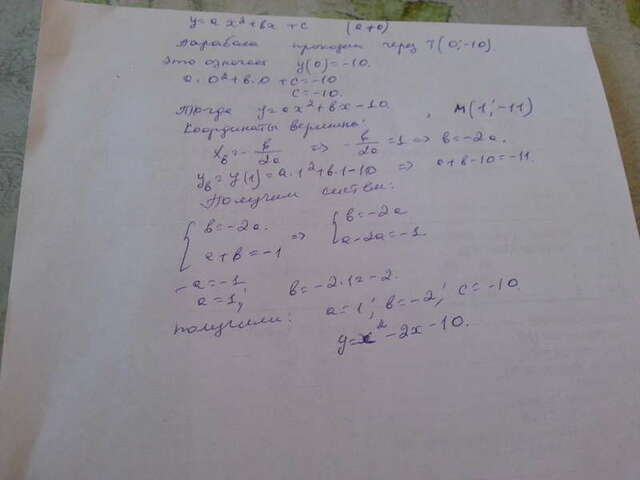 y=ax²+bx+c (a≠0)
Парабола проходит через T(0;-10).
Это означает y(0)=-10.
a·0²+b·0+c=-10
c=-10.
Тогда y=ax²+bx-10. , M(1;-11)
Координаты вершины:
x_в=-b/2a => -b/2a=1 => b=-2a.
y_в=y(1)=a·1²+b·1-10 => a+b-10=-11.
Получим систем:
{b=-2a. => {b=-2a
a+b=-1 a-2a=-1
-a=-1
a=1; b=-2·1=-2.
Получили: a=1; b=-2; c=-10
y=x²-2x-10.